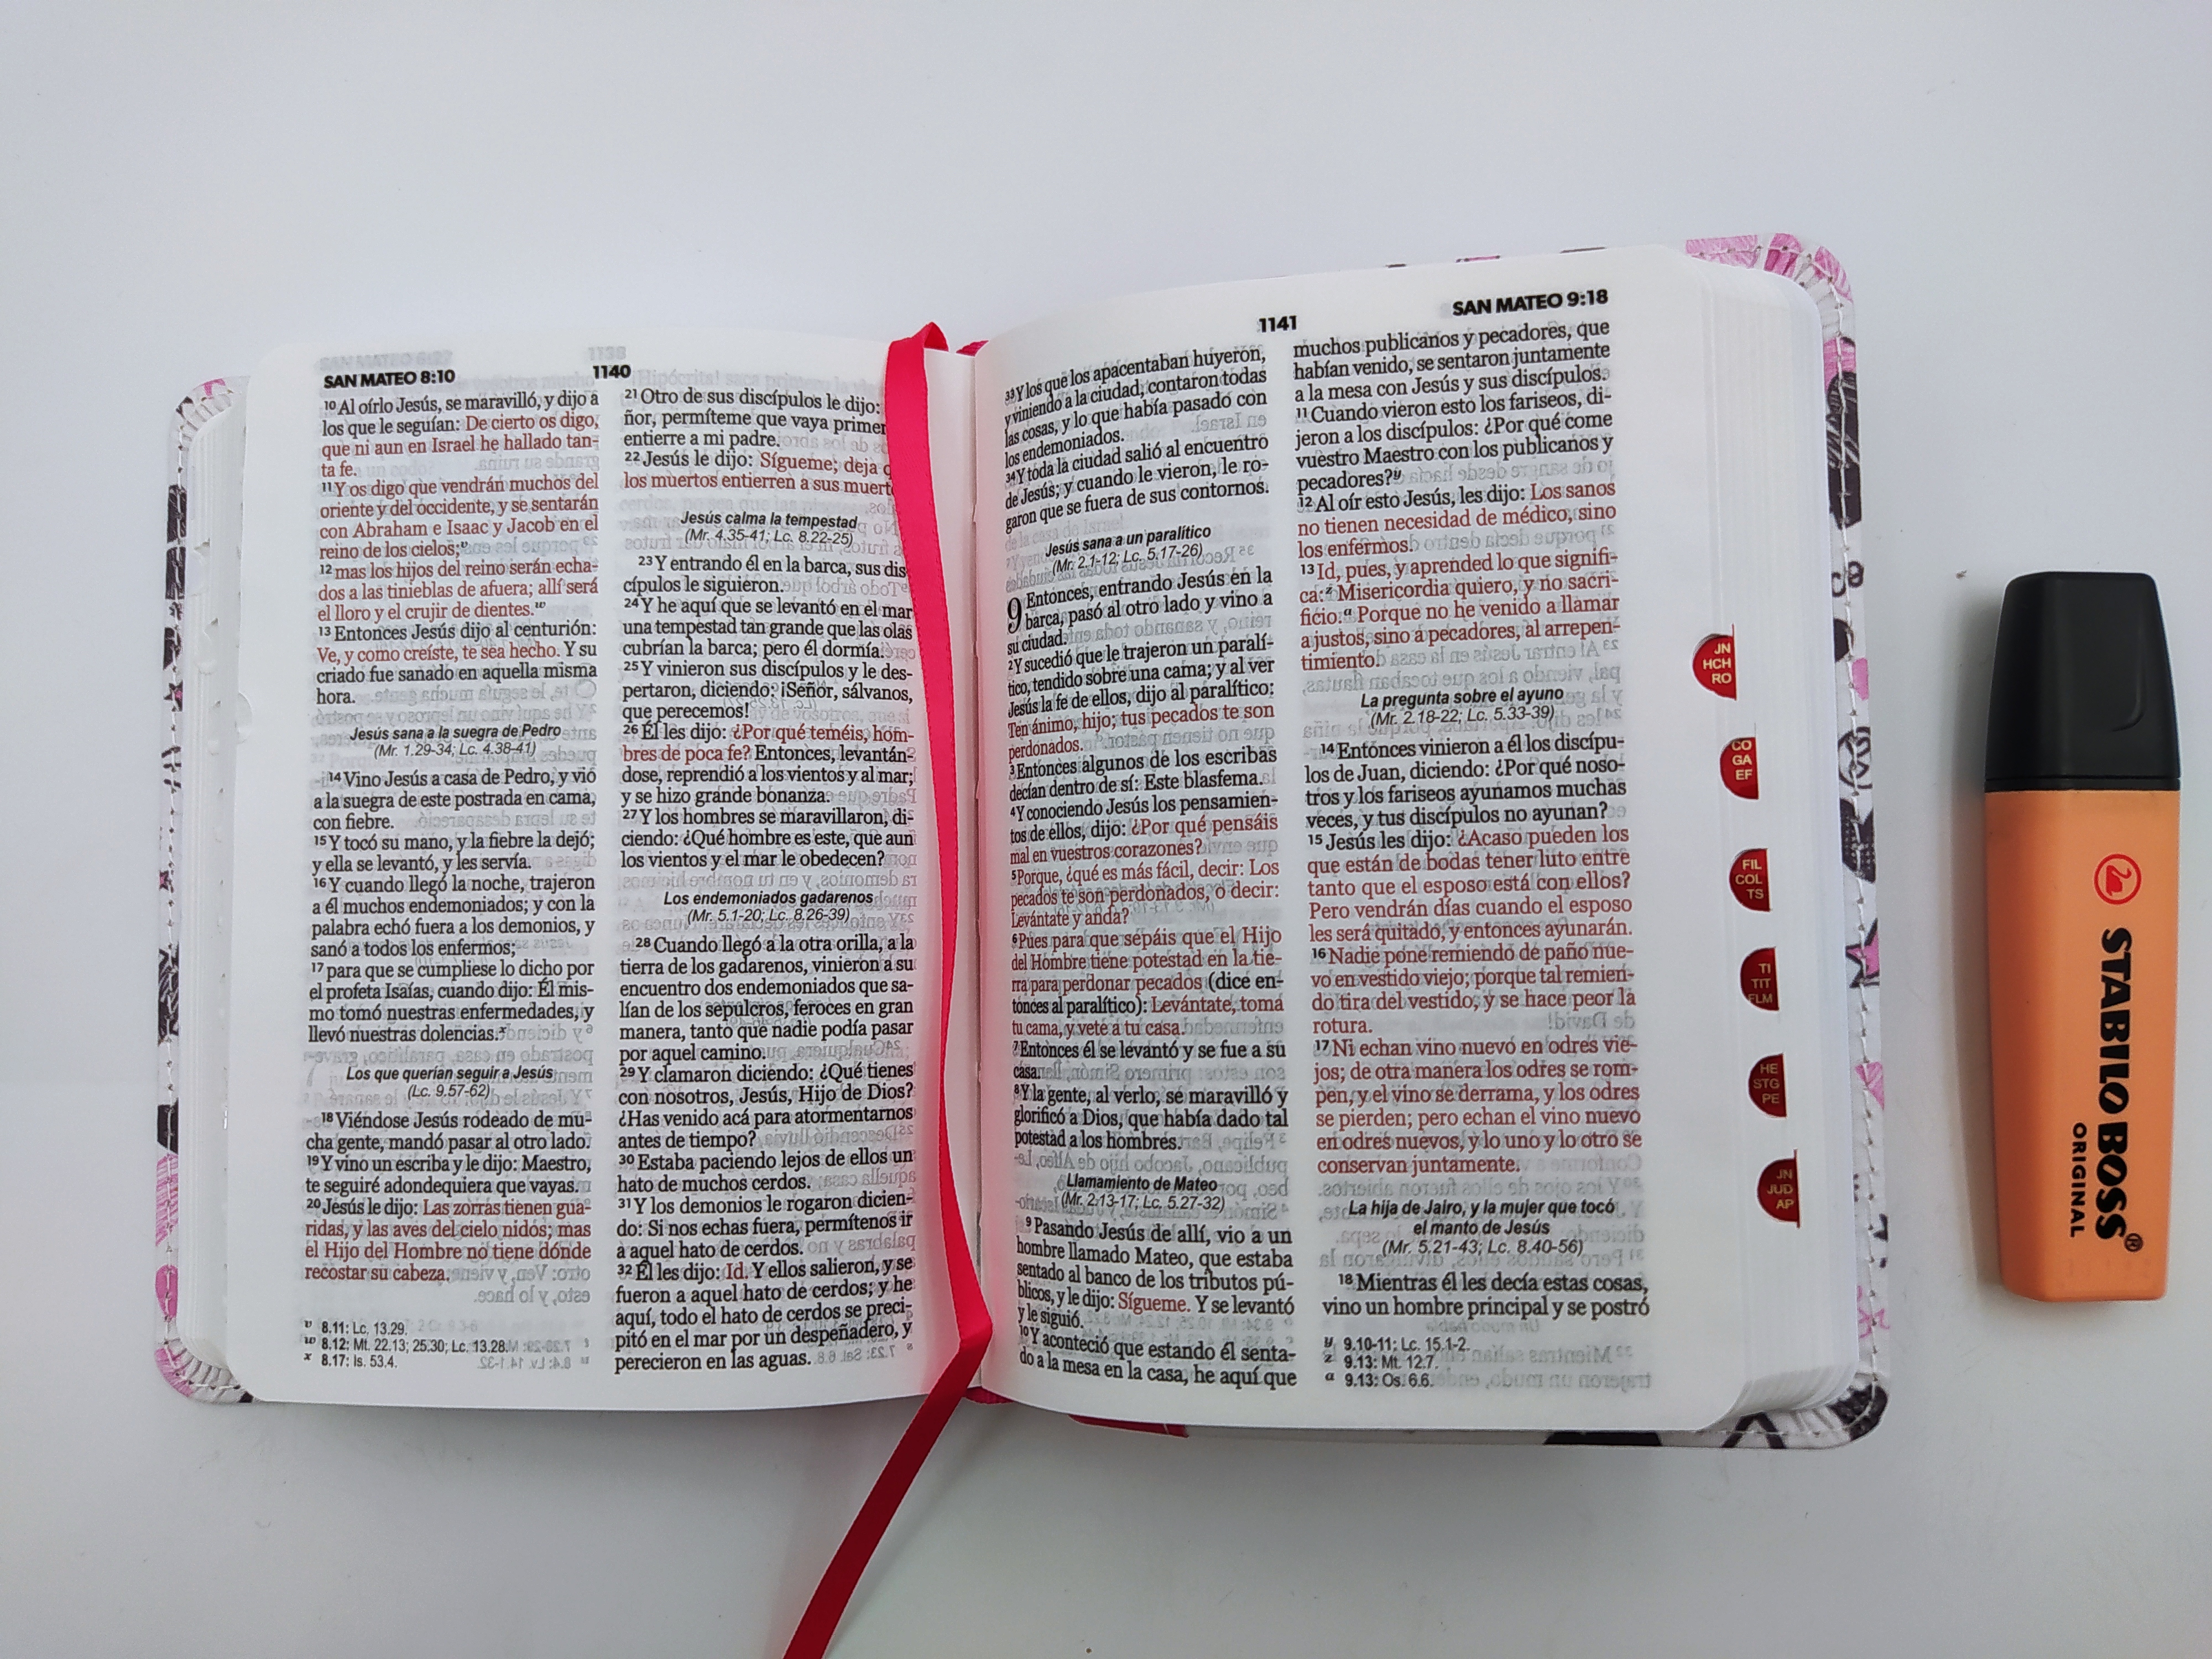 SAN MATEO 8:10
1140
10 Al oírlo Jesús, se maravilló, y dijo a
los que le seguían: De cierto os digo,
que ni aun en Israel he hallado tan-
ta fe.
11 Y os digo que vendrán muchos del
oriente y del occidente, y se sentarán
con Abraham e Isaac y Jacob en el
reino de los cielos;v
12 mas los hijos del reino serán echa-
dos a las tinieblas de afuera; allí será
el lloro y el crujir de dientes.w
13 Entonces Jesús dijo al centurión:
Ve, y como creíste, te sea hecho. Y su
criado fue sanado en aquella misma
hora.
Jesús sana a la suegra de Pedro
(Mr. 1.29-34; Lc. 4.38-41)
14 Vino Jesús a casa de Pedro, y vio
a la suegra de este postrada en cama,
con fiebre.
15 Y tocó su mano, y la fiebre la dejó;
y ella se levantó, y les servía.
16 Y cuando llegó la noche, trajeron
a él muchos endemoniados; y con la
palabra echó fuera a los demonios, y
sanó a todos los enfermos;
17 para que se cumpliese lo dicho por
el profeta Isaías, cuando dijo: Él mis-
mo tomó nuestras enfermedades, y
llevó nuestras dolencias.x
Los que querían seguir a Jesús
(Lc. 9.57-62)
18 Viéndose Jesús rodeado de mu-
cha gente, mandó pasar al otro lado.
19 Y vino un escriba y le dijo: Maestro,
te seguiré adondequiera que vayas.
20 Jesús le dijo: Las zorras tienen gua-
ridas, y las aves del cielo nidos; mas
el Hijo del Hombre no tiene dónde
recostar su cabeza.
v 8.11: Lc. 13.29.
w 8.12: Mt. 22.13; 25.30; Lc. 13.28.
x 8.17: Is. 53.4.
21 Otro de sus discípulos le dijo:
ñor, permíteme que vaya primer
entierre a mi padre.
22 Jesús le dijo: Sígueme; deja q
los muertos entierren a sus muert
Jesús calma la tempestad
(Mr. 4.35-41; Lc. 8.22-25)
23 Y entrando él en la barca, sus dis
cípulos le siguieron.
24 Y he aquí que se levantó en el mar
una tempestad tan grande que las olas
cubrían la barca; pero él dormía.
25 Y vinieron sus discípulos y le des-
pertaron, diciendo: ¡Señor, sálvanos,
que perecemos!
26 Él les dijo: ¿Por qué teméis, hom-
bres de poca fe? Entonces, levantán-
dose, reprendió a los vientos y al mar;
y se hizo grande bonanza.
27 Y los hombres se maravillaron, di-
ciendo: ¿Qué hombre es este, que aun
los vientos y el mar le obedecen?
Los endemoniados gadarenos
(Mr. 5.1-20; Lc. 8.26-39)
28 Cuando llegó a la otra orilla, a la
tierra de los gadarenos, vinieron a su
encuentro dos endemoniados que sa-
lían de los sepulcros, feroces en gran
manera, tanto que nadie podía pasar
por aquel camino.
29 Y clamaron diciendo: ¿Qué tienes
con nosotros, Jesús, Hijo de Dios?
¿Has venido acá para atormentarnos
antes de tiempo?
30 Estaba paciendo lejos de ellos un
hato de muchos cerdos.
31 Y los demonios le rogaron dicien-
do: Si nos echas fuera, permítenos ir
a aquel hato de cerdos.
32 Él les dijo: Id. Y ellos salieron, y se
fueron a aquel hato de cerdos; y he
aquí, todo el hato de cerdos se preci-
pitó en el mar por un despeñadero, y
perecieron en las aguas.
1141
SAN MATEO 9:18
33 Y los que los apacentaban huyeron,
y viniendo a la ciudad, contaron todas
las cosas, y lo que había pasado con
los endemoniados.
34 Y toda la ciudad salió al encuentro
de Jesús; y cuando le vieron, le ro-
garon que se fuera de sus contornos.
Jesús sana a un paralítico
(Mr. 2.1-12; Lc. 5.17-26)
9 Entonces, entrando Jesús en la
barca, pasó al otro lado y vino a
su ciudad.
2 Y sucedió que le trajeron un paralí-
tico, tendido sobre una cama; y al ver
Jesús la fe de ellos, dijo al paralítico:
Ten ánimo, hijo; tus pecados te son
perdonados.
3 Entonces algunos de los escribas
decían dentro de sí: Este blasfema.
4 Y conociendo Jesús los pensamien-
tos de ellos, dijo: ¿Por qué pensáis
mal en vuestros corazones?
5 Porque, ¿qué es más fácil, decir: Los
pecados te son perdonados, o decir:
Levántate y anda?
6 Pues para que sepáis que el Hijo
del Hombre tiene potestad en la tie-
rra para perdonar pecados (dice en-
tonces al paralítico): Levántate, toma
tu cama, y vete a tu casa.
7 Entonces él se levantó y se fue a su
casa.
8 Y la gente, al verlo, se maravilló y
glorificó a Dios, que había dado tal
potestad a los hombres.
Llamamiento de Mateo
(Mr. 2.13-17; Lc. 5.27-32)
9 Pasando Jesús de allí, vio a un
hombre llamado Mateo, que estaba
sentado al banco de los tributos pú-
blicos, y le dijo: Sígueme. Y se levantó
y le siguió.
10 Y aconteció que estando él senta-
do a la mesa en la casa, he aquí que
muchos publicanos y pecadores, que
habían venido, se sentaron juntamente
a la mesa con Jesús y sus discípulos.
11 Cuando vieron esto los fariseos, di-
jeron a los discípulos: ¿Por qué come
vuestro Maestro con los publicanos y
pecadores?y
12 Al oír esto Jesús, les dijo: Los sanos
no tienen necesidad de médico, sino
los enfermos.
13 Id, pues, y aprended lo que signifi-
ca:z Misericordia quiero, y no sacri-
ficio.a Porque no he venido a llamar
a justos, sino a pecadores, al arrepen-
timiento.
La pregunta sobre el ayuno
(Mr. 2.18-22; Lc. 5.33-39)
14 Entonces vinieron a él los discípu-
los de Juan, diciendo: ¿Por qué noso-
tros y los fariseos ayunamos muchas
veces, y tus discípulos no ayunan?
15 Jesús les dijo: ¿Acaso pueden los
que están de bodas tener luto entre
tanto que el esposo está con ellos?
Pero vendrán días cuando el esposo
les será quitado, y entonces ayunarán.
16 Nadie pone remiendo de paño nue-
vo en vestido viejo; porque tal remien-
do tira del vestido, y se hace peor la
rotura.
17 Ni echan vino nuevo en odres vie-
jos; de otra manera los odres se rom-
pen, y el vino se derrama, y los odres
se pierden; pero echan el vino nuevo
en odres nuevos, y lo uno y lo otro se
conservan juntamente.
La hija de Jairo, y la mujer que tocó
el manto de Jesús
(Mr. 5.21-43; Lc. 8.40-56)
18 Mientras él les decía estas cosas,
vino un hombre principal y se postró
y 9.10-11: Lc. 15.1-2.
z 9.13: Mt. 12.7.
a 9.13: Os. 6.6.
JN
HCH
RO
CO
GA
EF
FIL
COL
TS
TI
TIT
FLM
HE
STG
PE
JN
JUD
AP
STABILO BOSS®
ORIGINAL